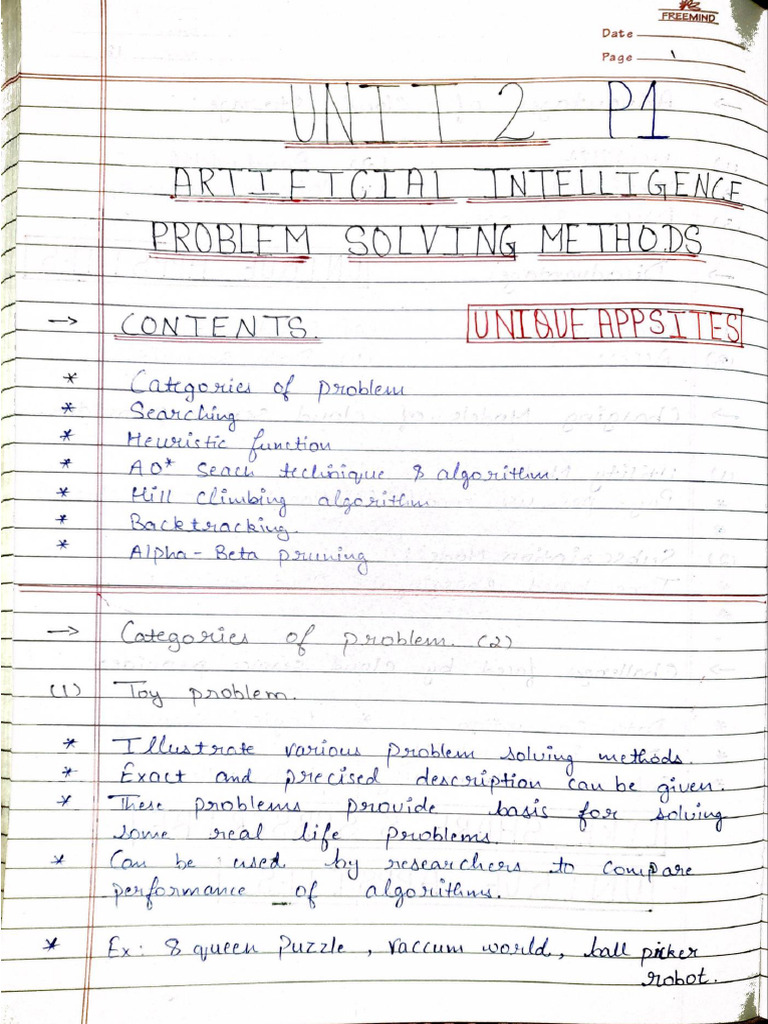 FREEMIND
Date
Page 1
UNIT 2 P1
ARTIFICIAL INTELLIGENCE
PROBLEM SOLVING METHODS
→ CONTENTS. UNIQUE APPSITES
* Categories of problem
* Searching
* Heuristic function
* AO* Seach technique & algorithm.
* Hill climbing algorithm
* Backtracking.
* Alpha-Beta pruning
→ Categories of problem. (2)
(1) Toy problem.
* Illustrate various problem solving methods.
* Exact and precised description can be given.
* These problems provide basis for solving
some real life problems.
* Can be used by researchers to compare
performance of algorithms.
* Ex: 8 queen Puzzle, vaccum world, ball picker
robot.